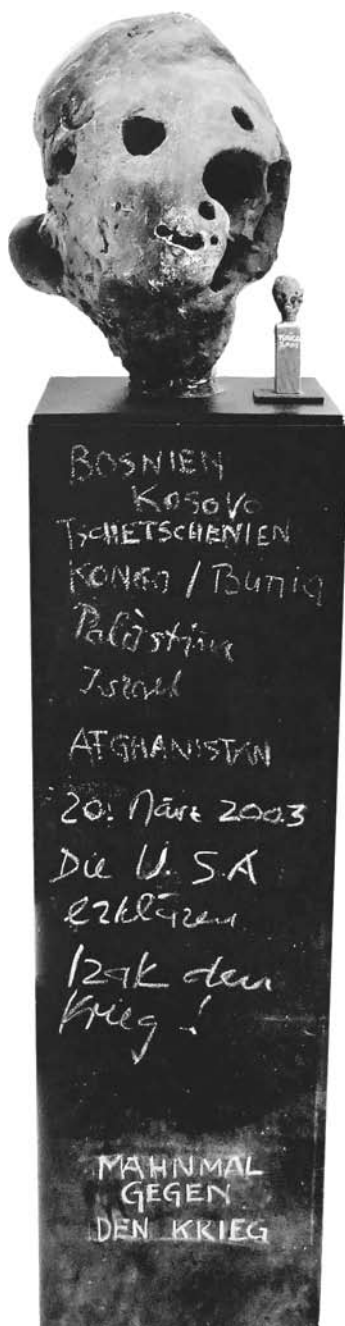 BOSNIEN
Kosovo
TSCHETSCHENIEN
KONGO / Bunia
Palästina
Israel
AFGHANISTAN
20. März 2003
Die U.S.A
erklären
Irak den
Krieg!
MAHNMAL
GEGEN
DEN KRIEG